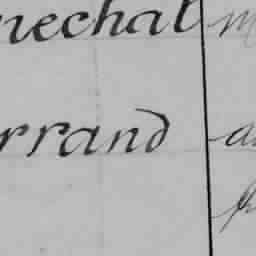 nechal
rrand